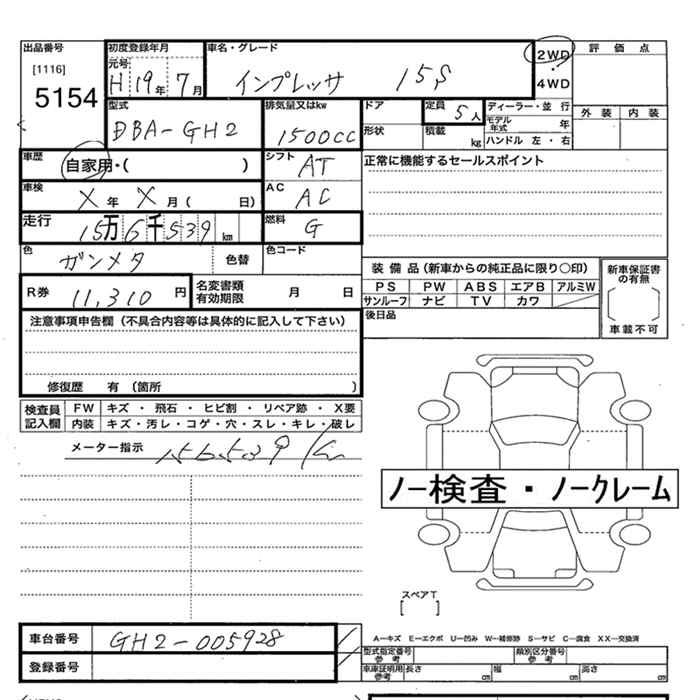 出品番号 初度登録年月 車名・グレード 2WD 評価点
[1116] 元号
5154 H 19年 7月 インプレッサ 15S 4WD
型式 排気量又はkw ドア 定員 5人 ディーラー・並行 外装 内装
DBA-GH2 1500cc 形状 積載 kg モデル年式 年
ハンドル 左・右
車歴 自家用・( ) シフト AT 正常に機能するセールスポイント
車検 X年 X月 ( 日) AC AC
走行 15万6千539 km 燃料 G
色 ガンメタ 色替 色コード
装備品(新車からの純正品に限り○印) 新車保証書の有無
R券 11,310円 名変書類有効期限 月 日 PS PW ABS エアB アルミW
サンルーフ ナビ TV カワ 車載不可
注意事項申告欄(不具合内容等は具体的に記入して下さい) 後日品
修復歴 有 (箇所 )
検査員記入欄 FW キズ・飛石・ヒビ割・リペア跡・X要
内装 キズ・汚レ・コゲ・穴・スレ・キレ・破レ
メーター指示 156539 km
ノー検査・ノークレーム
スペアT
[ ]
車台番号 GH2-005928
A―キズ E―エクボ U―凹み W―補修跡 S―サビ C―腐食 XX―交換済
型式指定番号 参考 類別区分番号 参考
登録番号 車庫証明用 参考 長さ cm 幅 cm 高さ cm